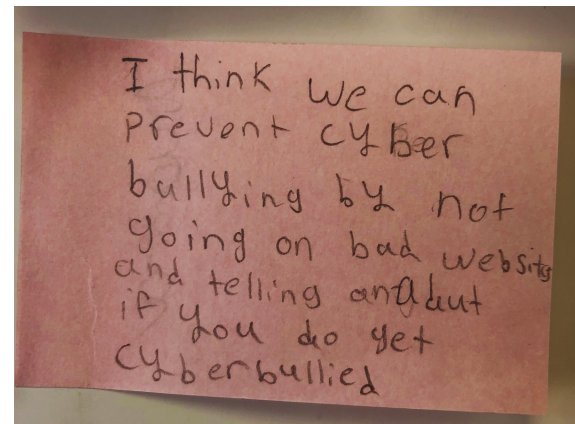 I think we can
prevent cyber
bullying by not
going on bad website
and telling an adut
if you do get
cyberbullied